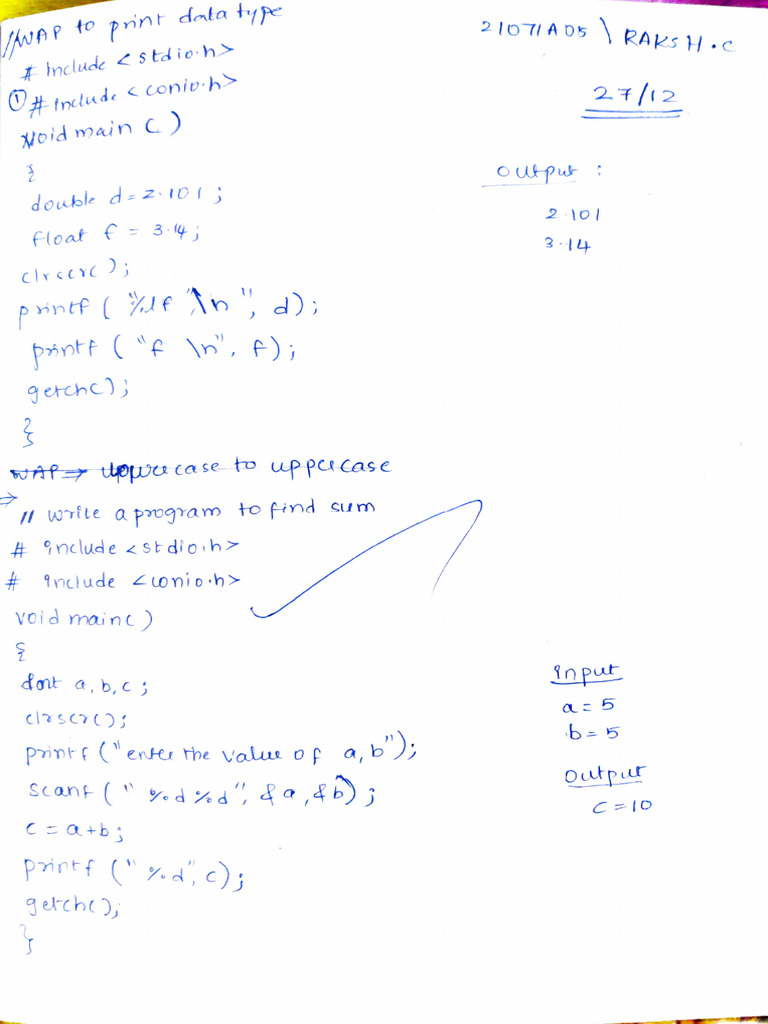 //WAP to print data type
21071A05 \ RAKSH.C
# include <stdio.h>
① # include <conio.h>
27/12
void main()
{
Output :
double d=2.101;
2.101
float f = 3.14;
3.14
clrscr();
printf ( "%lf \n", d);
printf ( "f \n", f);
getch();
}
WAP ⇒ uppercase to uppercase
⇒
// write a program to find sum
# include <stdio.h>
# include <conio.h>
void main()
{
int a, b, c;
input
clrscr();
a = 5
printf ("enter the value of a, b");
b = 5
scanf ( " %d %d", &a, &b) ;
output
c = a+b;
c = 10
printf (" %d", c);
getch();
}